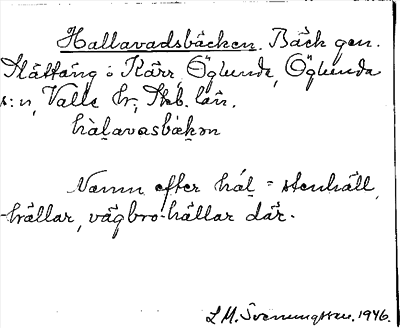 Hallavadsbäcken. Bäck gen.
Slättäng o Kärr, Öglunda, Öglunda
s:n, Valle hd, Skb. län.
hàlavasbäkən
Namn efter hál = stenhäll,
-hällar, vägbro-hällar där.
L M. Svenungsson. 1946.